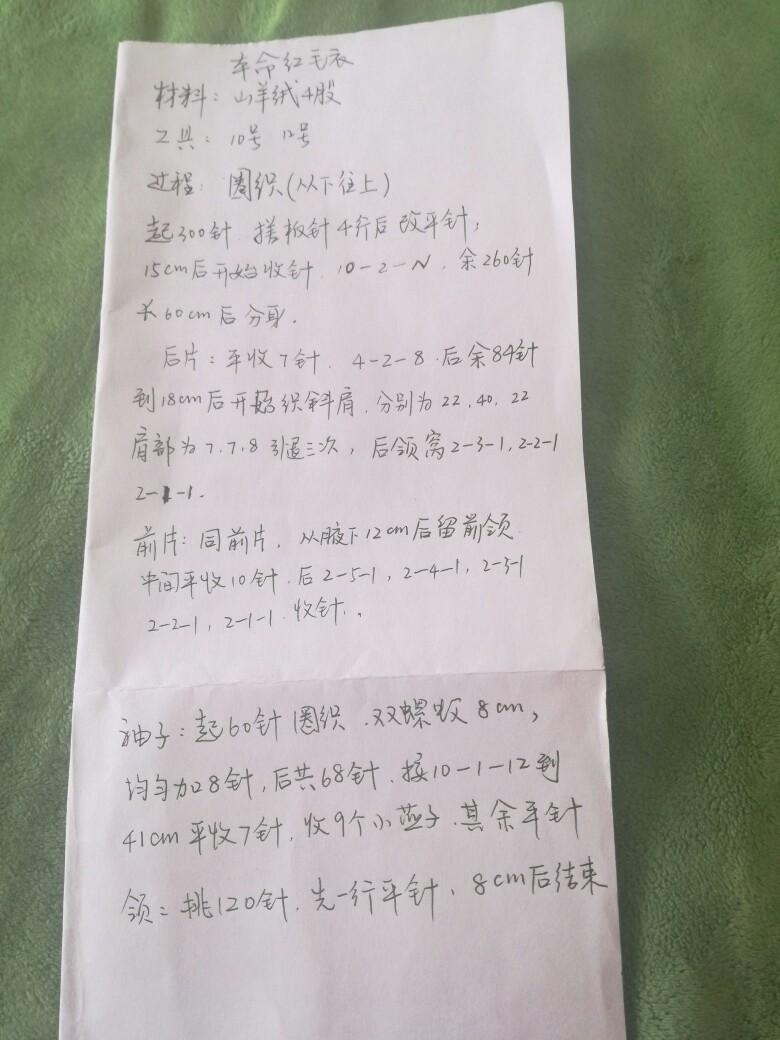 本命红毛衣
材料：山羊绒4股
工具：10号 12号
过程：圈织(从下往上)
起300针.搓板针4行后改平针，
15cm后开始收针.10-2-N.余260针
长60cm后分身.
后片：平收7针.4-2-8.后余84针
到18cm后开始织斜肩.分别为22.40.22
肩部为7.7.8引退三次，后领窝2-3-1,2-2-1
2-1-1.
前片：同前片.从腋下12cm后留前领.
中间平收10针.后2-5-1，2-4-1，2-3-1
2-2-1，2-1-1.收针.
袖子：起60针圈织.双螺纹8cm，
均匀加8针，后共68针.按10-1-12到
41cm平收7针.收9个小燕子.其余平针
领：挑120针.先一行平针.8cm后结束